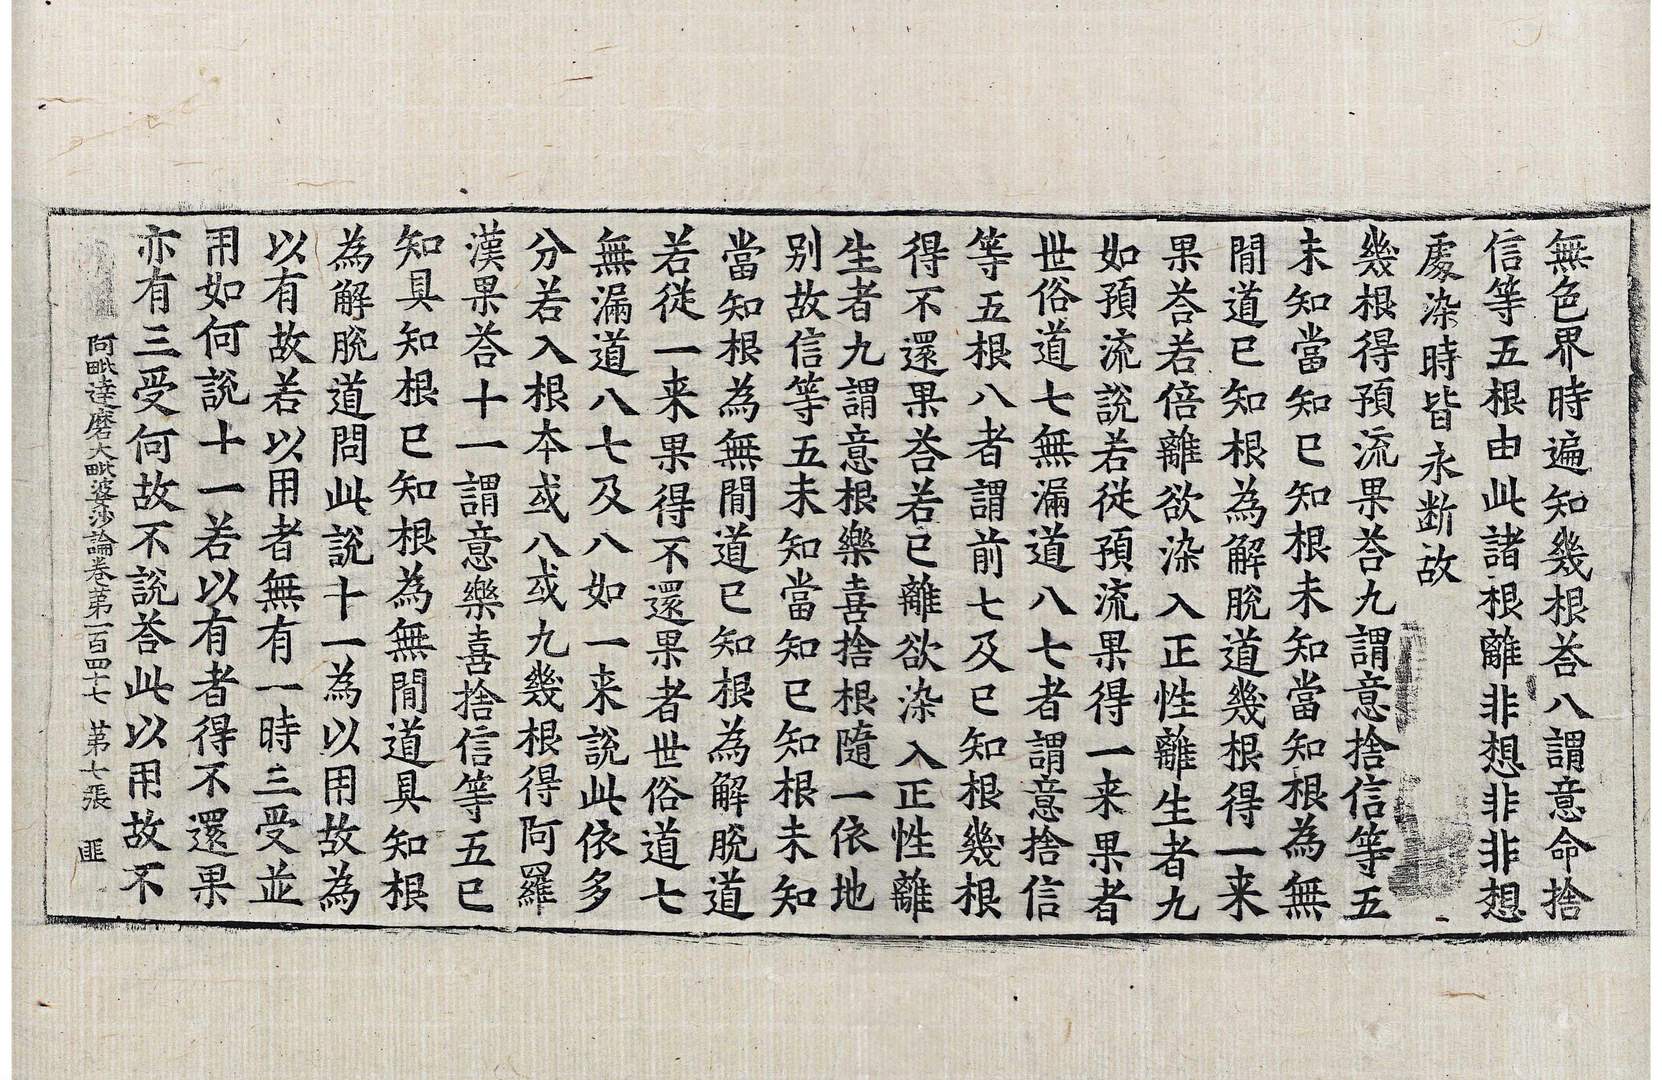 無色界時遍知幾根荅八謂意命捨
信等五根由此諸根離非想非非想
處染時皆永断故
幾根得預流果荅九謂意捨信等五
未知當知已知根未知當知根為無
間道已知根為解脫道幾根得一来
果荅若倍離欲染入正性離生者九
如預流說若從預流果得一来果者
世俗道七無漏道八七者謂意捨信
等五根八者謂前七及已知根幾根
得不還果荅若已離欲染入正性離
生者九謂意根樂喜捨根隨一依地
别故信等五未知當知已知根未知
當知根為無間道已知根為解脫道
若從一来果得不還果者世俗道七
無漏道八七及八如一来說此依多
分若入根本或八或九幾根得阿羅
漢果荅十一謂意樂喜捨信等五已
知具知根已知根為無間道具知根
為解脫道問此說十一為以用故為
以有故若以用者無有一時三受並
用如何說十一若以有者得不還果
亦有三受何故不說荅此以用故不
阿毗達磨大毗婆沙論卷第一百四十七 第七張 匪